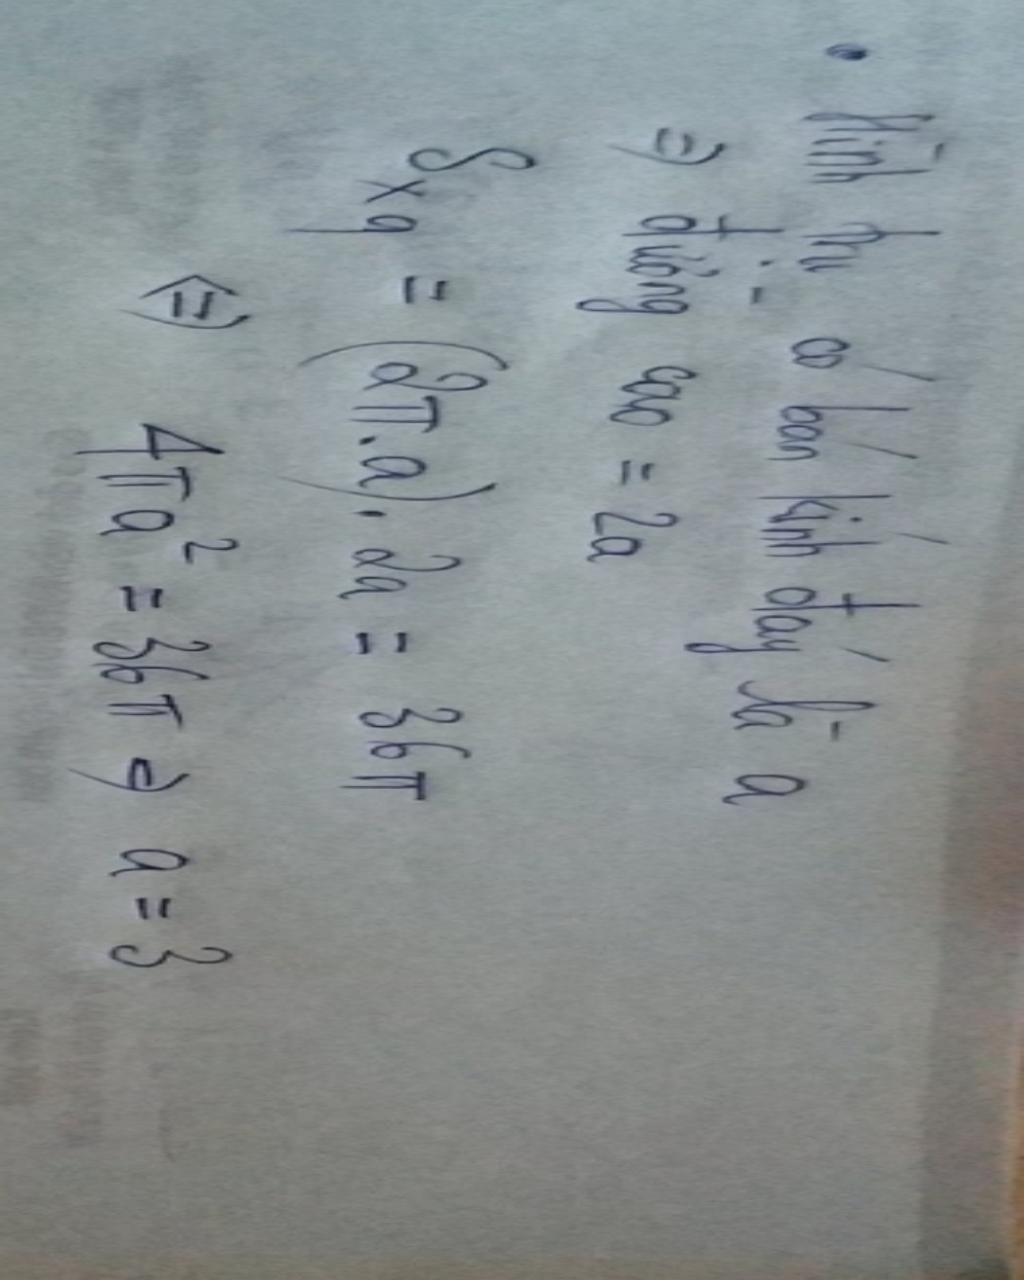 • Hình trụ có bán kính đáy là a
=) đường cao = 2a
Sxq = (2π.a). 2a = 36π
<=) 4πa² = 36π => a = 3